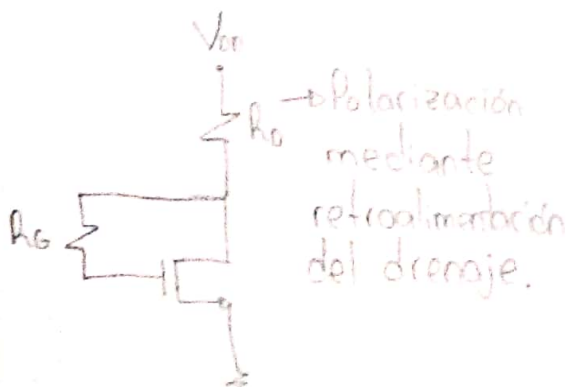 V_DD
R_D → Polarización
mediante
retroalimentación
del drenaje.
R_G